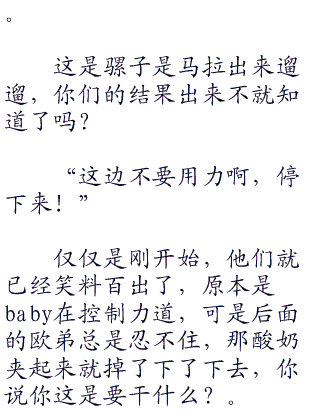 。
这是骡子是马拉出来遛
遛，你们的结果出来不就知
道了吗？
“这边不要用力啊，停
下来！”
仅仅是刚开始，他们就
已经笑料百出了，原本是
baby在控制力道，可是后面
的欧弟总是忍不住，那酸奶
夹起来就掉了下了下去，你
说你这是要干什么？。